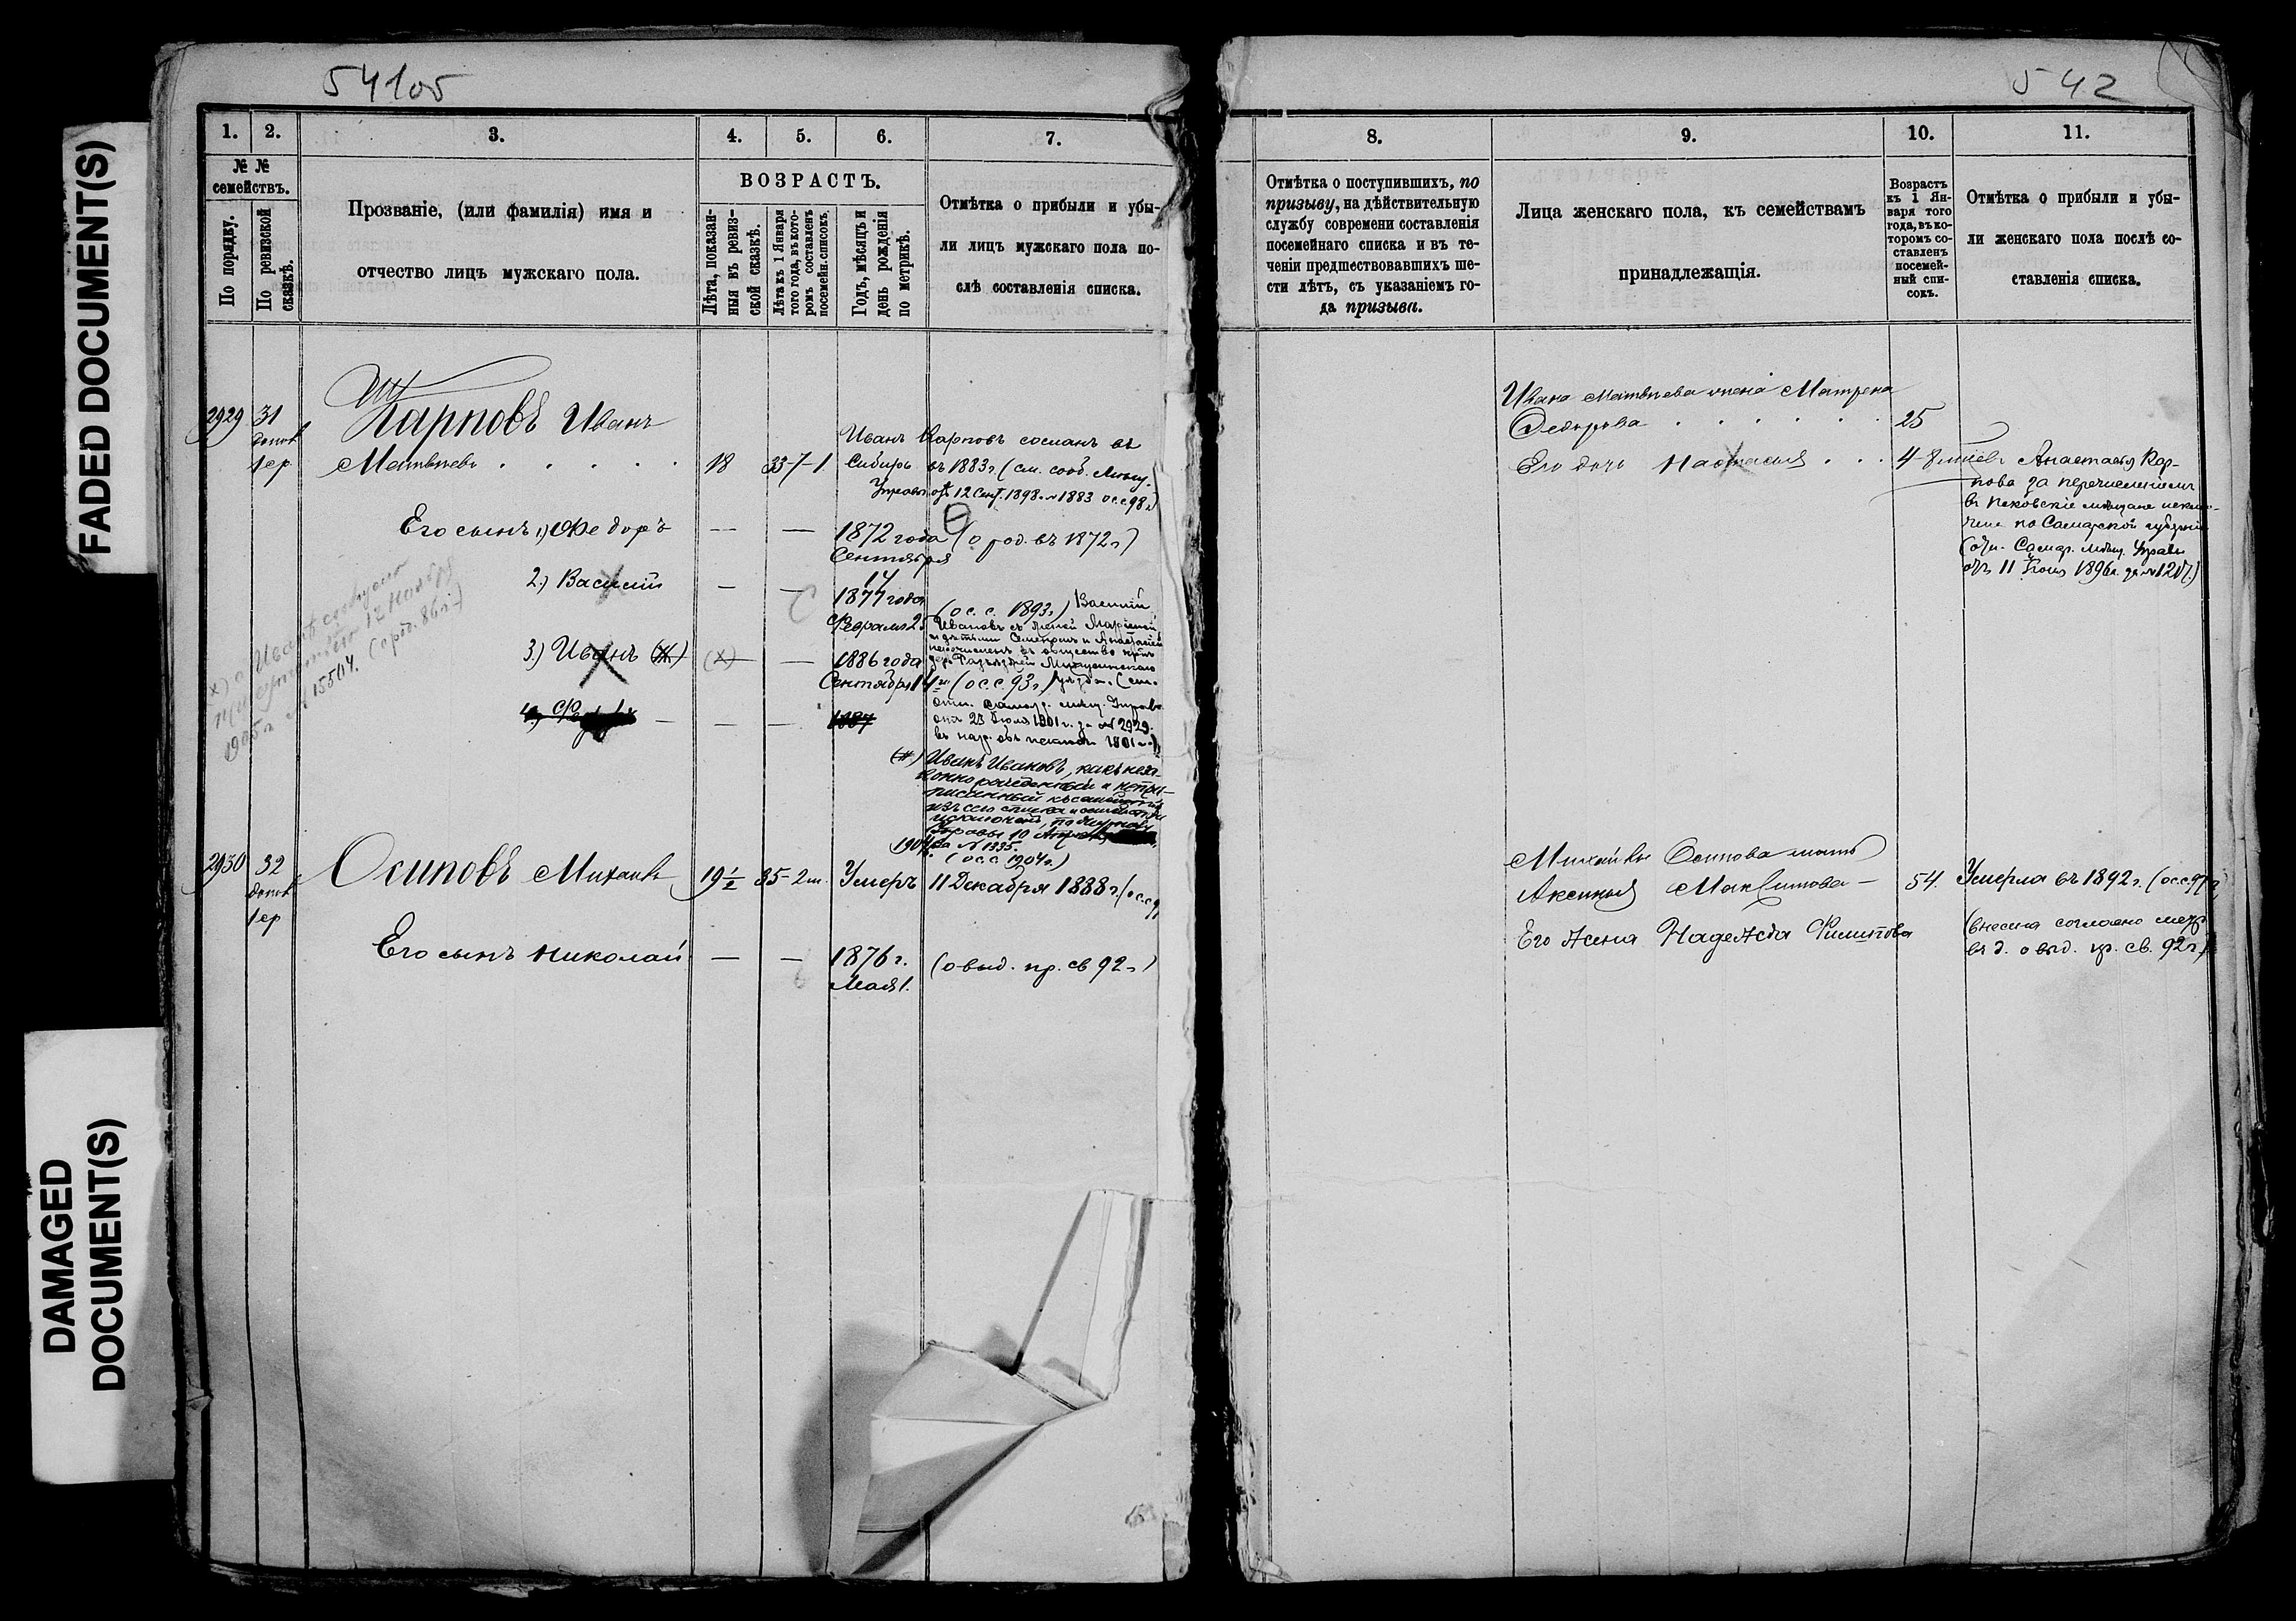 54105
542
FADED DOCUMENT(S)
DAMAGED
DOCUMENT(S)
1. 2. 3. 4. 5. 6. 7.
№ №
семействъ.
По порядку.
По ревизской
сказкѣ.
Прозваніе, (или фамилія) имя и
отчество лицъ мужскаго пола.
ВОЗРАСТЪ.
Лѣта, показан-
ныя въ ревиз-
ской сказкѣ.
Лѣта къ 1 Января
того года, въ кото-
ромъ составленъ
посемейн. списокъ.
Годъ, мѣсяцъ и
день рожденія
по метрикѣ.
Отмѣтка о прибыли и убы-
ли лицъ мужскаго пола по-
слѣ составленія списка.
2929 31
допол
1 ер.
Карповъ Иванъ
Матвѣевъ . . . . . 18 33-7-1
Иванъ Карповъ сосланъ въ
Сибирь въ 1883 г. (см. сооб. Мѣщ.
Управы отъ 12 Сент. 1898 № 1883 о.с.с. 98 г.)
Его сынъ 1) Федоръ — — 1872 года (о род. въ 1872 г.)
Сентября
14
2.) Василій — — 1877 года
Февраля 25
(о с. с. 1893 г.) Василій
Ивановъ съ женой Маріей
и дѣтьми Семеномъ и Анастасіей
перечисленъ въ общество крѣ.
3.) Иванъ (Ж) (X) — 1886 года
Сентября 14 (о с. с. 93 г.) уѣзда. (см.
отн. Самар. мѣщ. Управы
отъ 23 Іюля 1901 г. за № 2929.
въ нар. объ исключ. 1901 г.)
4.) — — — 1887
(Ж) Иванъ Ивановъ, какъ неза-
коннорожденный и непри-
писанный къ семейству
изъ сего списка и семейства
исключенъ, по журналу
Управы 10
1904 за № 1935.
(о с. с. 1904 г.)
1905 г. № 15504. 
2930 32
допол
1 ер
Осиповъ Михаилъ 19 1/2 35-2 м. Умеръ 11 Декабря 1888 г. (о с. с. 9
Его сынъ Николай — — 1876 г. (о выд. пр. св. 92 г.)
Мая 1.
8. 9. 10. 11.
Отмѣтка о поступившихъ, по
призыву, на дѣйствительную
службу современи составленія
посемейнаго списка и въ те-
ченіи предшествовавшихъ ше-
сти лѣтъ, съ указаніемъ го-
да призыва.
Лица женскаго пола, къ семействамъ
принадлежащія.
Возрастъ
къ 1 Ян-
варя того
года, въ ко-
торомъ со-
ставленъ
посемей-
ный спи-
сокъ.
Отмѣтка о прибыли и убы-
ли женскаго пола послѣ со-
ставленія списка.
Ивана Матвѣева жена Матрена
Федорова . . . . . . 25
Его дочь Настасья . . . 4
Анастасія Кар-
пова за перечисленіемъ
въ Псковскіе мѣщане исклю-
чена по Самарской губерніи
(отн. Самар. мѣщ. Управы
отъ 11 Іюня 1896 г. за № 1207.)
Михаила Осипова мать
Аксинья Максимова — 54. Умерла въ 1892 г. (о с. с. 97 г.)
Его жена Надежда Филипова (внесена согласно мет.
въ д. о выд. пр. св. 92 г.)